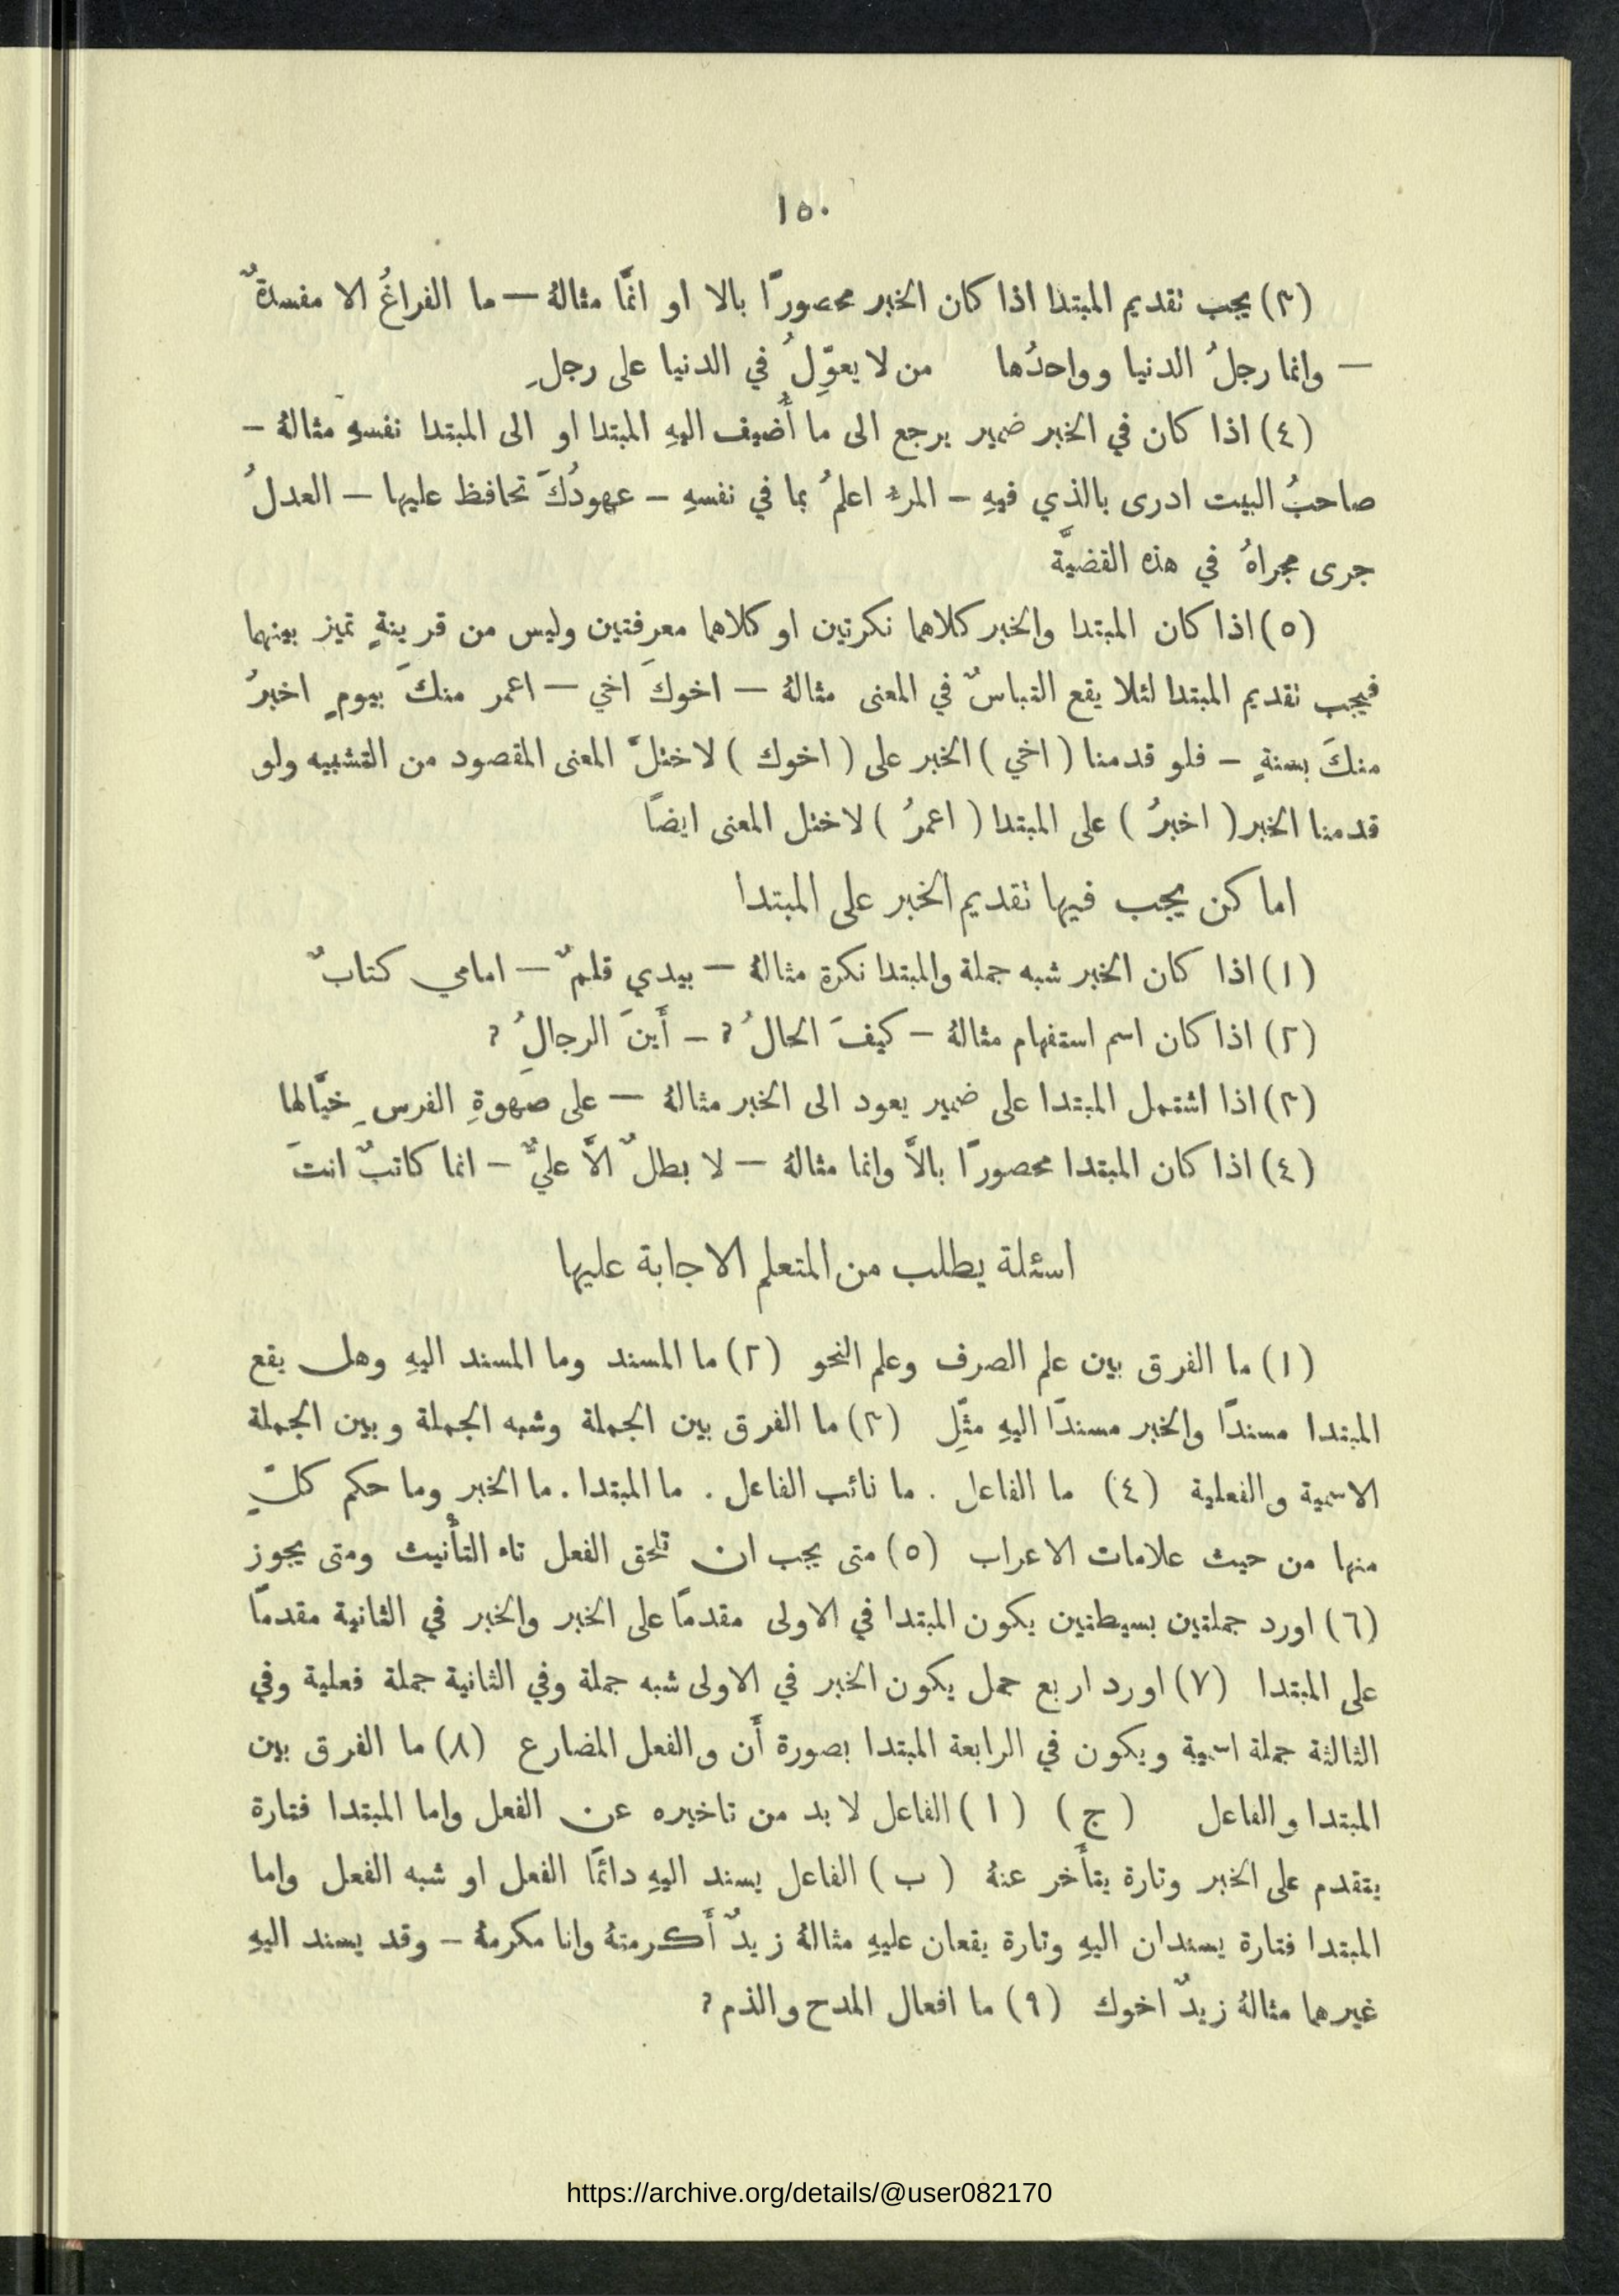 ١٥٠
(٣) يجب تقديم المبتدا اذا كان الخبر محصورًا بالا او انمَّا مثالهُ — ما الفراغُ الا مفسدةٌ
— وانما رجلُ الدنيا وواحدُها من لا يعوّلُ في الدنيا على رجلِ
(٤) اذا كان في الخبر ضمير يرجع الى ما أُضيف اليهِ المبتدا او الى المبتدا نفسهِ مثالهُ —
صاحبُ البيت ادرى بالذي فيهِ — المرءُ اعلمُ بما في نفسهِ — عهودُكَ تحافظ عليها — العدلُ
جرى مجراهُ في هذه القضيَّة
(٥) اذا كان المبتدا والخبر كلاهما نكرتين او كلاهما معرفتين وليس من قرينةٍ تميز بينهما
فيجب تقديم المبتدا لئلا يقع التباسٌ في المعنى مثالهُ — اخوكَ اخي — اعمر منكَ بيومٍ اخبرُ
منكَ بسنةٍ — فلو قدمنا (اخي) الخبر على (اخوك) لاختلَّ المعنى المقصود من التشبيه ولو
قدمنا الخبر (اخبرُ) على المبتدا (اعمرُ) لاختل المعنى ايضًا
اماكن يجب فيها تقديم الخبر على المبتدا
(١) اذا كان الخبر شبه جملة والمبتدا نكرة مثالهُ — بيدي قلمٌ — امامي كتابٌ
(٢) اذا كان اسم استفهام مثالهُ — كيفَ الحالُ؟ — أَينَ الرجالُ؟
(٣) اذا اشتمل المبتدا على ضمير يعود الى الخبر مثالهُ — على صهوةِ الفرسِ خيَّالها
(٤) اذا كان المبتدا محصورًا بالاَّ وانما مثالهُ — لا بطلٌ الاَّ عليٌّ — انما كاتبٌ انتَ
اسئلة يطلب من المتعلم الاجابة عليها
(١) ما الفرق بين علم الصرف وعلم النحو (٢) ما المسند وما المسند اليهِ وهل يقع
المبتدا مسندًا والخبر مسندًا اليهِ مثِّل (٣) ما الفرق بين الجملة وشبه الجملة وبين الجملة
الاسمية والفعلية (٤) ما الفاعل . ما نائب الفاعل . ما المبتدا . ما الخبر وما حكم كلٍّ
منها من حيث علامات الاعراب (٥) متى يجب ان تلحق الفعل تاء التأنيث ومتى يجوز
(٦) اورد جملتين بسيطتين يكون المبتدا في الاولى مقدمًا على الخبر والخبر في الثانية مقدمًا
على المبتدا (٧) اورد اربع جمل يكون الخبر في الاولى شبه جملة وفي الثانية جملة فعلية وفي
الثالثة جملة اسمية ويكون في الرابعة المبتدا بصورة أَن والفعل المضارع (٨) ما الفرق بين
المبتدا والفاعل (ج) (ا) الفاعل لا بد من تاخيره عن الفعل واما المبتدا فتارة
يتقدم على الخبر وتارة يتأَخر عنهُ (ب) الفاعل يسند اليهِ دائمًا الفعل او شبه الفعل واما
المبتدا فتارة يسندان اليهِ وتارة يقعان عليهِ مثالهُ زيدٌ أَكرمتهُ وانا مكرمهُ — وقد يسند اليهِ
غيرهما مثالهُ زيدٌ اخوك (٩) ما افعال المدح والذم؟
https://archive.org/details/@user082170